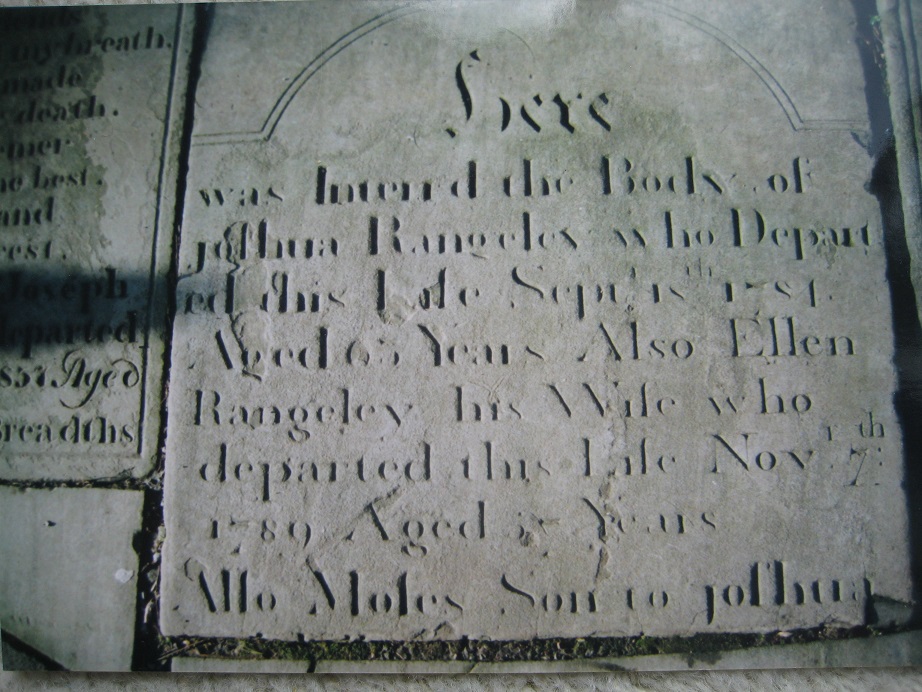 my breath.
made
death.
ner
best.
and
rest.
Joseph
departed
1857. Aged
Breadths
Here
was Interr'd the Body of
joſhua Rangeley who Depart
ed this Life Sept. 18th 1784.
Aged 65 Years Also Ellen
Rangeley his Wife who
departed this Life Novr. 7th
1789 Aged Years
Allſo Moſes Son to joſhua